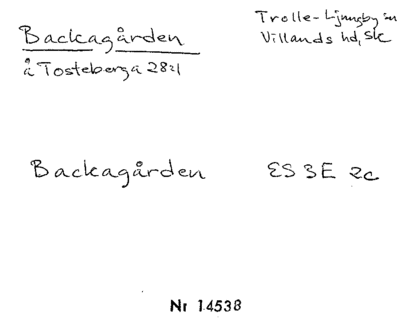 Backagården
å Tosteberga 28:1
Trolle-Ljungby sn
Villands hd, Sk
Backagården
ES 3E 2c
Nr 14538